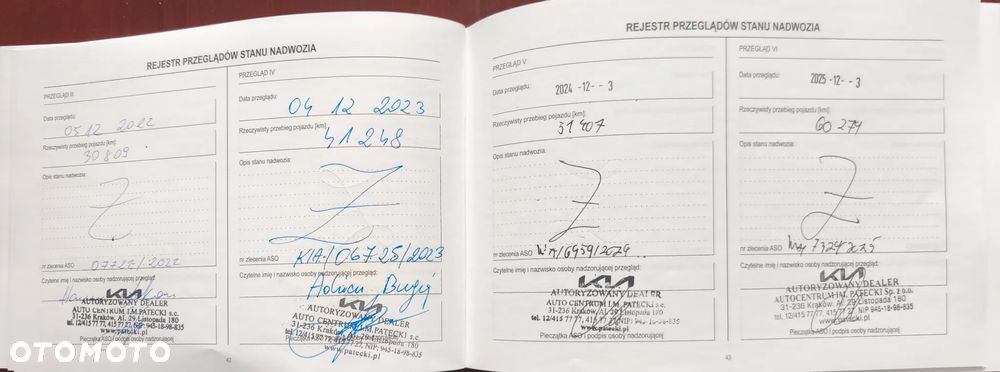 REJESTR PRZEGLĄDÓW STANU NADWOZIA
PRZEGLĄD III
Data przeglądu:
05 12 2022
Rzeczywisty przebieg pojazdu [km]:
30 809
Opis stanu nadwozia:
Z
nr zlecenia ASO
Czytelne imię i nazwisko osoby nadzorującej przegląd:
KIA
AUTORYZOWANY DEALER
AUTO CENTRUM I.M. PATECKI s.c.
31-236 Kraków, Al. 29 Listopada 180
tel. 12/415 77 77, 415 77 27, NIP: 945-18-98-835
www.patecki.pl
Pieczątka ASO i podpis osoby nadzorującej
PRZEGLĄD IV
Data przeglądu:
04 12 2023
Rzeczywisty przebieg pojazdu [km]:
41 248
Opis stanu nadwozia:
Z
nr zlecenia ASO
KIA/06725/2023
Czytelne imię i nazwisko osoby nadzorującej przegląd:
KIA
AUTORYZOWANY DEALER
AUTO CENTRUM I.M. PATECKI s.c.
31-236 Kraków, Al. 29 Listopada 180
77 27, NIP: 945-18-98-835
www.patecki.pl
Pieczątka ASO i podpis osoby nadzorującej
42
REJESTR PRZEGLĄDÓW STANU NADWOZIA
PRZEGLĄD V
Data przeglądu:
2024 -12- - 3
Rzeczywisty przebieg pojazdu [km]:
51 407
Opis stanu nadwozia:
Z
nr zlecenia ASO
Czytelne imię i nazwisko osoby nadzorującej przegląd:
KIA
AUTORYZOWANY DEALER
AUTO CENTRUM I.M. PATECKI s.c.
31-236 Kraków, Al. 29 Listopada 180
tel. 12/415 77 77, 415 77 27, NIP: 945-18-98-835
www.patecki.pl
Pieczątka ASO i podpis osoby nadzorującej
PRZEGLĄD VI
Data przeglądu:
2025 -12- - 3
Rzeczywisty przebieg pojazdu [km]:
60 274
Opis stanu nadwozia:
Z
nr zlecenia ASO
Czytelne imię i nazwisko osoby nadzorującej przegląd:
KIA
AUTORYZOWANY DEALER
AUTOCENTRUM I.M. PATECKI Sp. z o.o.
31-236 Kraków, Al. 29 Listopada 180
tel. 12/415 77 77, 415 77 27 NIP 945-18-98-835
www.patecki.pl
Pieczątka ASO i podpis osoby nadzorującej
43
OTOMOTO